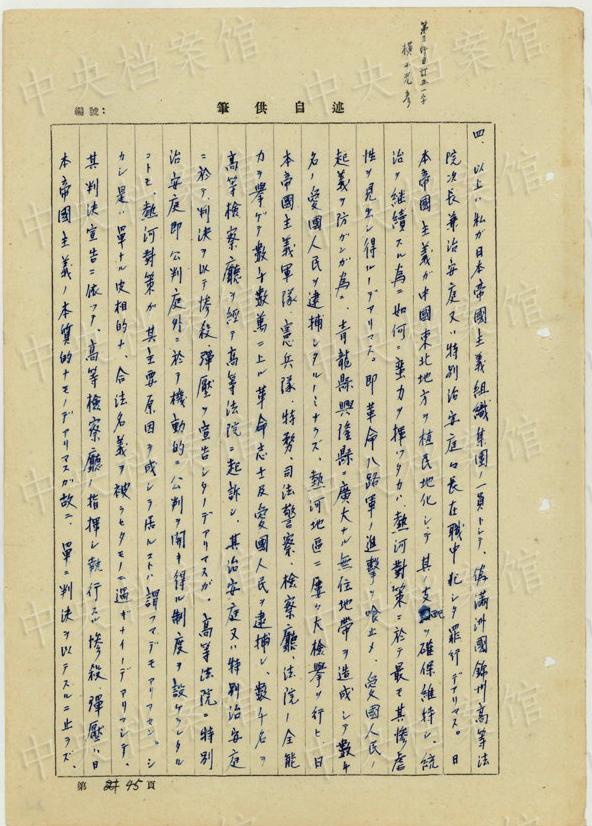 第三行目訂正一字
横山光彦
編號：
述自供筆
四、以上ハ私ガ日本帝國主義組織集團ノ一員トシテ、偽滿洲國錦州高等法
院次長兼治安庭又ハ特別治安庭々長在職中犯シタ罪行デアリマス。日
本帝國主義ガ中國東北地方ヲ植民地化シテ其ノ支配ヲ確保維持シ、統
治ヲ継續スル為ニ如何ニ蛮力ヲ揮ツタカハ熱河対策ニ於テ最モ其惨虐
性ヲ見出シ得ルノデアリマス。即革命八路軍ノ進撃ヲ喰止メ、愛國人民ノ
起義ヲ防グガ為ニ、青龍縣興隆縣ニ廣大ナル無住地帯ヲ造成シテ数千
名ノ愛國人民ヲ逮捕シタルノミナラズ、熱河地區ニ屢々大檢擧ヲ行ヒ、日
本帝國主義軍隊、憲兵隊、特務、司法警察、檢察廳、法院ノ全能
力ヲ擧ゲテ数千数萬ニ上ル革命志士及愛國人民ヲ逮捕シ、数千名ヲ
高等檢察廳ヲ經テ高等法院ニ起訴シ、其治安庭又ハ特別治安庭
ニ於テ、判決ヲ以テ惨殺彈壓ヲ宣告シタノデアリマスガ、高等法院ノ特別
治安庭即公判庭外ニ於テ機動的ニ公判ヲ開キ得ル制度ヲ設ケラレタル
コトモ、熱河対策ガ其主要原因ヲ成シテ居ルコトハ謂フマデモアリマセン。シ
カシ是ハ單ナル皮相的ナ、合法名義ヲ被ラセタモノニ過ギナイノデアリマシテ、
其判決宣告ニ依ツテ、高等檢察廳ノ指揮シ執行スル惨殺彈壓ハ日
本帝國主義ノ本質的ナモノデアリマスガ故ニ、單ニ判決ヲ以テスルニ止ラズ、
第 45 頁
中央档案馆